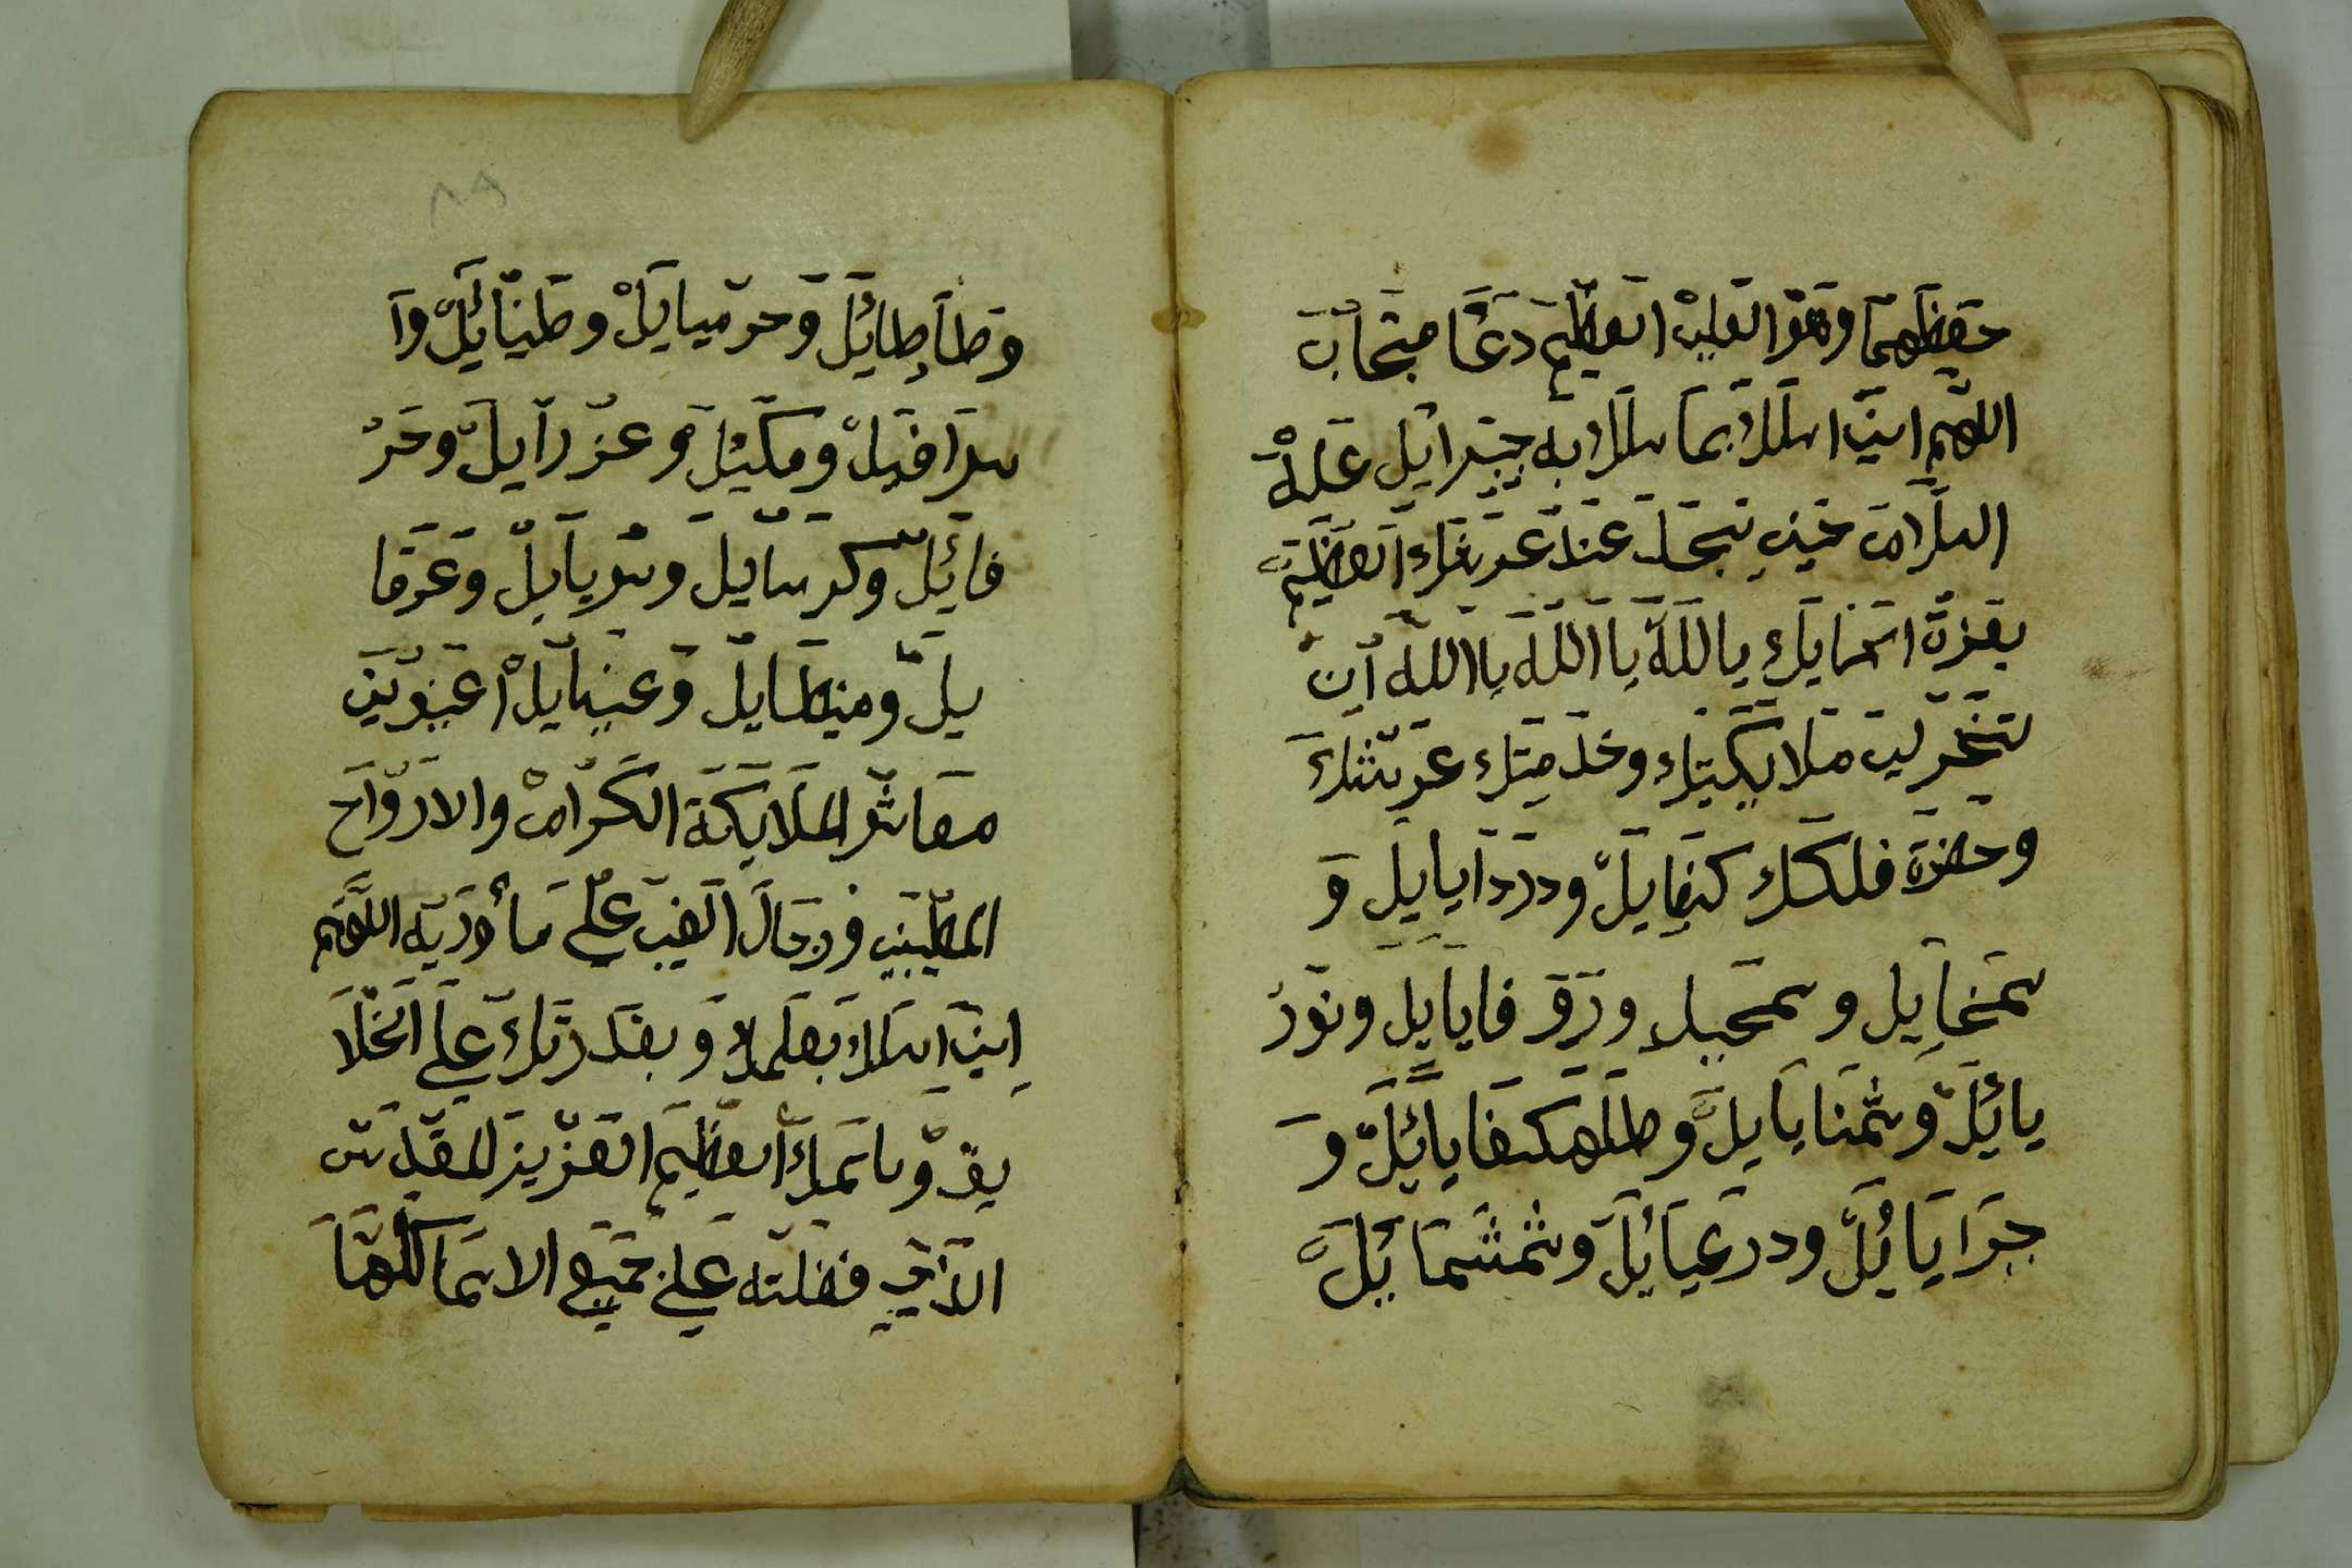 حفظهما وهو العلي العظيم دعا مجاب
اللهم اني اسلك بما سلك به جبرايل عليه
السلام حين تجلا عند عرشك العظيم
بعزة اسمايك يا الله يا الله يا الله ان
تسخر لي ملايكتك وخدمتك عريشك
وحضرة فلكك كنفايل ودردايايل و
سمخايل وسمحيل ورقفايايل ونور
يايل وشمنايايل وطلهكفايايل و
جرايايل ودرعيايل وشمشمايل
وطاطايل وحرميايل وطنيايل وا
سرافيل وميكيل وعزرايل وحر
فايل وكرسايل وسريايل وعرقا
يل وميططايل وعنيايل اعينوني
معاشر الملايكة الكرام والارواح
المطيبين ورجال الغيب على ما أوريه اللهم
اني اسلك بعلمك وبقدرتك على الخلا
يق وباسمك العظيم العزيز القدس
الذي فضلته على جميع الاسما كلها
٨٩